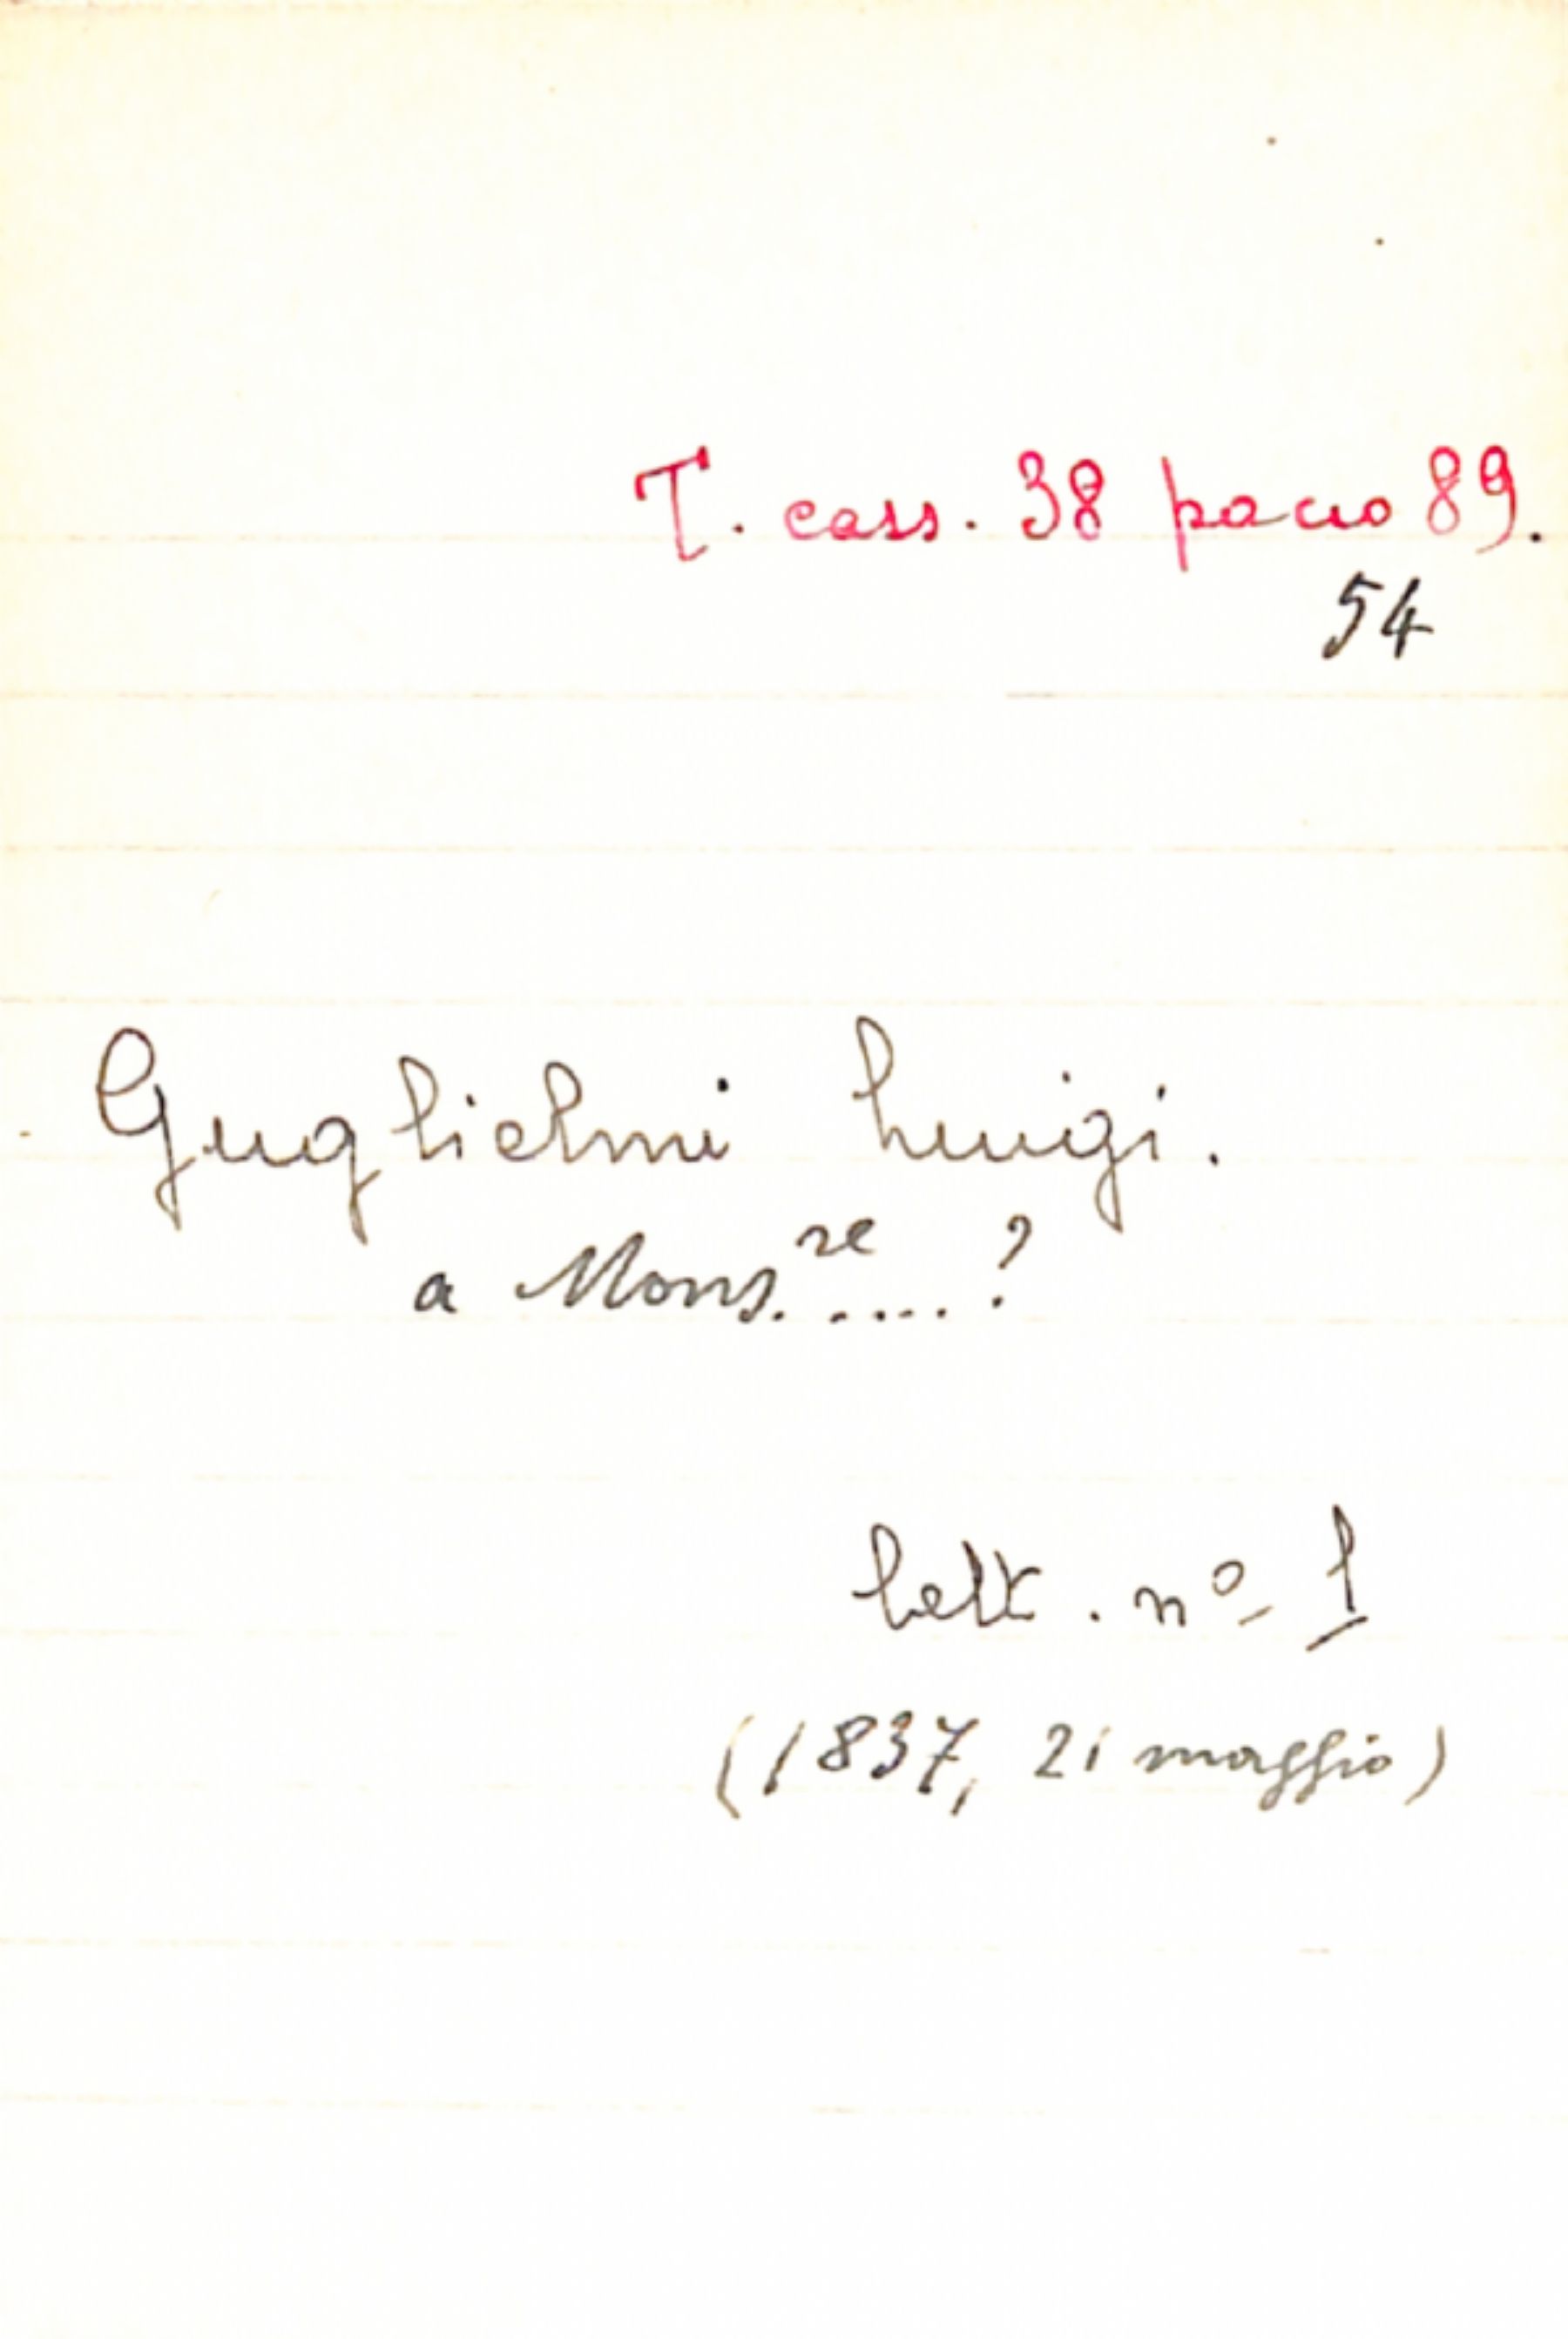 T. cass. 38 pacco 89.
54
Guglielmi Luigi.
a Mons.re ....?
Lett. nº 1
(1837, 21 maggio)